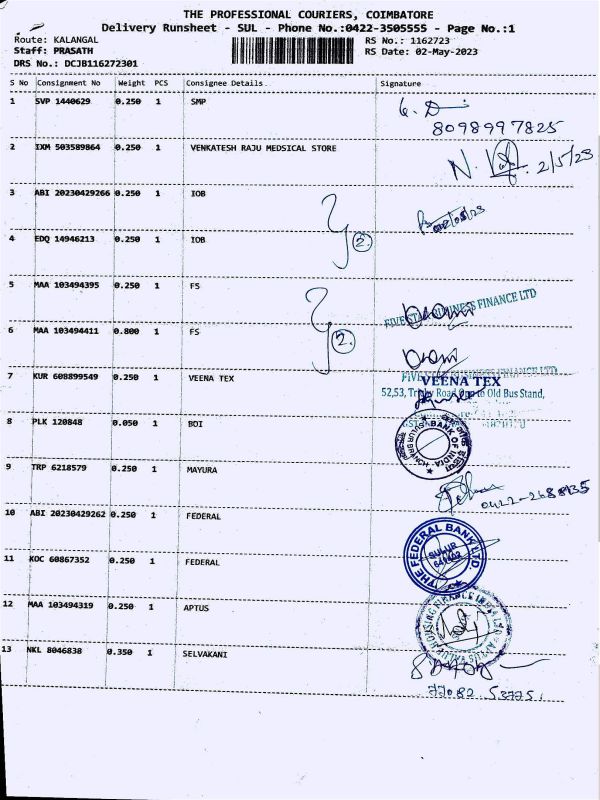 THE PROFESSIONAL COURIERS, COIMBATORE
Delivery Runsheet - SUL - Phone No.:0422-3505555 - Page No.:1
Route: KALANGAL RS No.: 1162723
Staff: PRASATH RS Date: 02-May-2023
DRS No.: DCJB116272301
S No Consignment No Weight PCS Consignee Details Signature
1 SVP 1440629 0.250 1 SMP
8098997825
2 IXM 503589864 0.250 1 VENKATESH RAJU MEDSICAL STORE
N. 2/5/23
3 ABI 20230429266 0.250 1 IOB
4 EDQ 14946213 0.250 1 IOB
2.
5 MAA 103494395 0.250 1 FS
FIVESTAR BUSINESS FINANCE LTD
6 MAA 103494411 0.800 1 FS
2.
FIVESTAR BUSINESS FINANCE LTD
7 KUR 608899549 0.250 1 VEENA TEX
VEENA TEX
52,53, Trichy Road Opp to Old Bus Stand,
8 PLK 120848 0.050 1 BOI
BANK OF INDIA
9 TRP 6218579 0.250 1 MAYURA
0422-2688135
10 ABI 20230429262 0.250 1 FEDERAL
THE FEDERAL BANK LTD.
SULUR
641402
11 KOC 60867352 0.250 1 FEDERAL
12 MAA 103494319 0.250 1 APTUS
13 NKL 8046838 0.350 1 SELVAKANI
77082 53775.